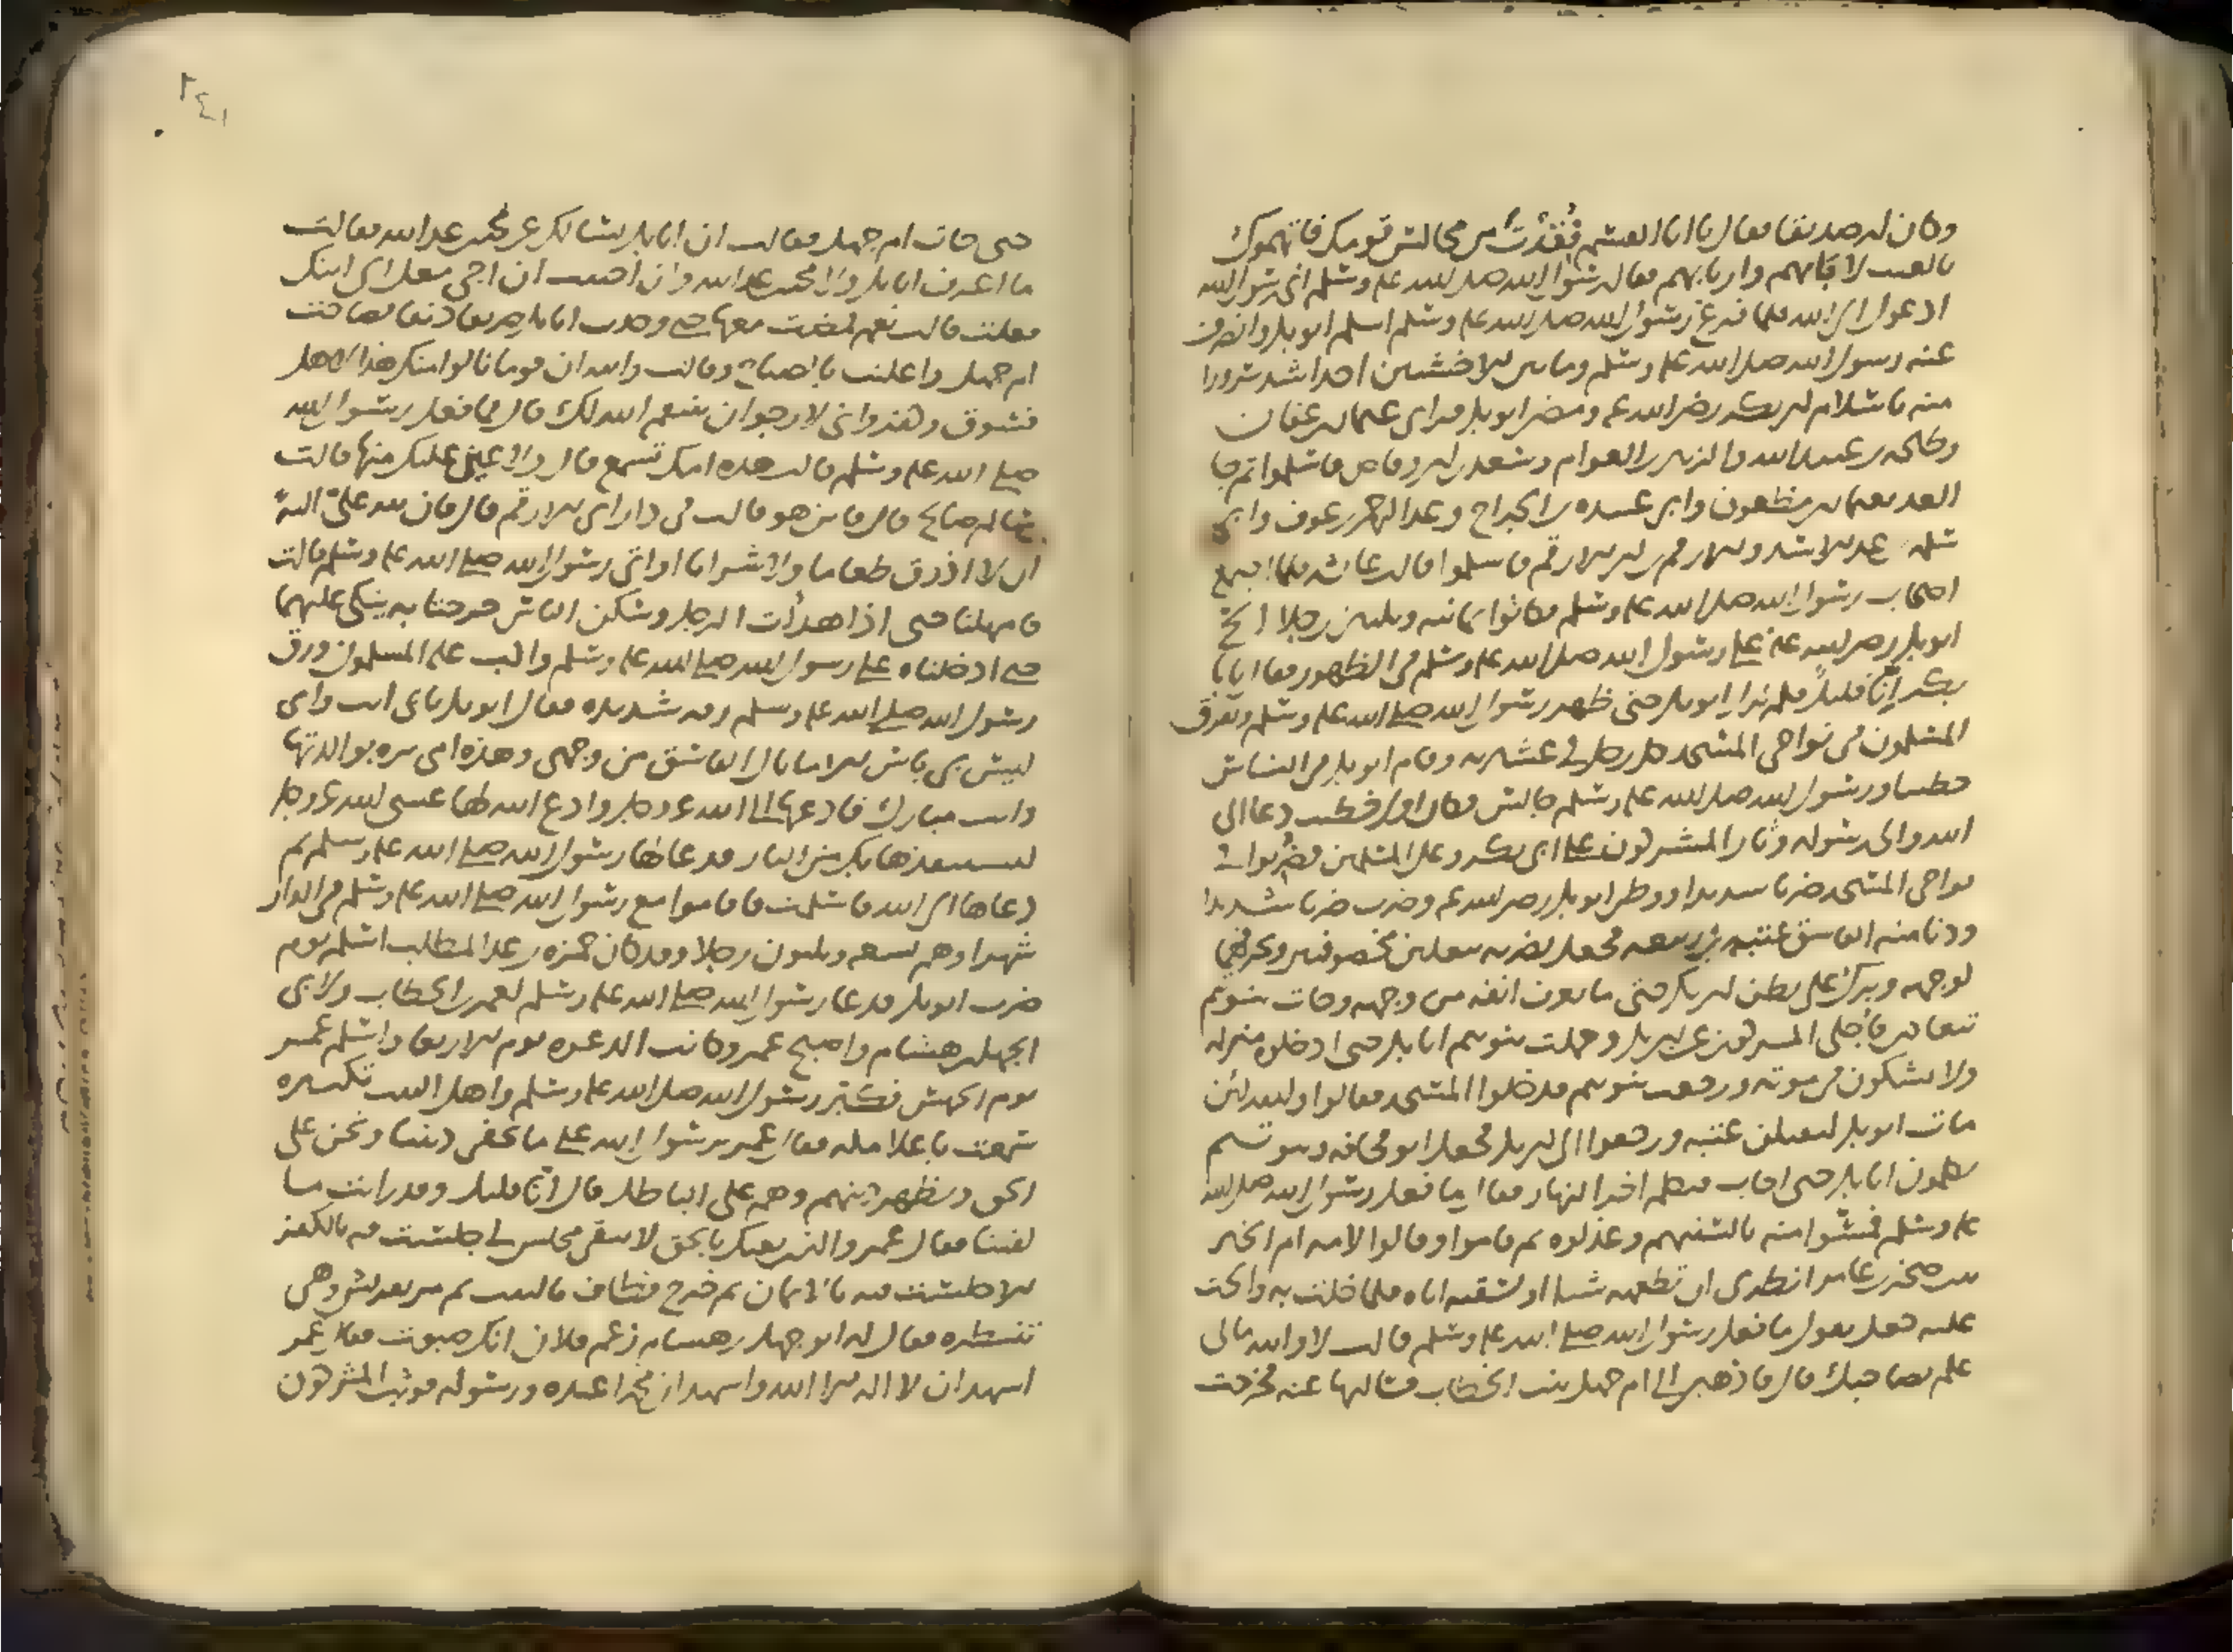 وكان له صديقا فقال يا ابا القسم فُقِدْتَ من مجالس قومك فاتهموك
بالعيب لابائهم وامهاتهم فقال رسول الله صلى الله عليه وسلم انى رسول الله
ادعوك الى الله فلما فرغ رسول الله صلى الله عليه وسلم اسلم ابو بكر وانصرف
عنه رسول الله صلى الله عليه وسلم وما بين الاخشبين احد اشد سرورا
منه باسلام ابى بكر رضى الله عنه ومضى ابو بكر فراى عثمان بن عفان
وطلحه بن عبيد الله والزبير بن العوام وسعد بن ابى وقاص فاسلموا ثم جا
الغد بعثمان بن مظعون وابى عبيده بن الجراح وعبد الرحمن بن عوف وابى
سلمه بن عبد الاسد والارقم بن ابى الارقم فاسلموا قالت عائشه فلما اجتمع
اصحاب رسول الله صلى الله عليه وسلم وكانوا ثمانيه وثلثين رجلا الح
ابو بكر رضى الله عنه على رسول الله صلى الله عليه وسلم فى الظهور فقال يا ابا
بكر اِنّا قليلٌ فلم يزل ابو بكر حتى ظهر رسول الله صلى الله عليه وسلم وتفرق
المسلمون فى نواحى المسجد كل رجل فى عشيرته وقام ابو بكر فى الناس
خطيبا ورسول الله صلى الله عليه وسلم جالس وكان اول خطيب دعا الى
الله والى رسوله وثار المشركون على ابى بكر وعلى المسلمين فضُربوا فى
نواحى المسجد ضربا شديدا ووطى ابو بكر رضى الله عنه وضرب ضربا شديدا
ودنا منه الفاسق عتبه بن ربيعه فجعل يضربه بنعلين مخصوفتين ويحرفهما
لوجهه وبرك على بطن ابى بكر حتى ما يعرف انفه من وجهه وجات بنو تيم
تتعادى فاجلى المشركون عن ابى بكر وحملت بنو تيم ابا بكر حتى ادخلوه منزله
ولا يشكون فى موته ورجعت بنو تيم فدخلوا المسجد فقالوا والله لئن
مات ابو بكر لنقتلن عتبه ورجعوا الى ابى بكر فجعل ابو قحافه وبنو تيم
يكلمون ابا بكر حتى اجاب فتكلم اخر النهار فقال ما فعل رسول الله صلى الله
عليه وسلم فمسوا منه بالسنتهم وعذلوه ثم قاموا وقالوا لامه ام الخير
بنت صخر بن عامر انظرى ان تطعميه شيا او تسقيه اياه فلما خلت به والحت
عليه جعل يقول ما فعل رسول الله صلى الله عليه وسلم قالت لا والله مالى
علم بصاحبك قال فاذهبى الى ام جميل بنت الخطاب فسليها عنه فخرجت
حتى جات ام جميل فقالت ان ابا بكر يسالك عن محمد بن عبد الله فقالت
ما اعرف ابا بكر ولا محمد بن عبد الله وان احببت ان امضى معك الى ابنك
فعلت قالت نعم فمضت معها حتى وجدت ابا بكر صريعا دنفا فصاحت
ام جميل واعلنت بالصياح وقالت والله ان قوما نالوا منك هذا لاهل
فسوق وكفر وانى لارجو ان ينتقم الله لك قال فما فعل رسول الله
صلى الله عليه وسلم قالت هذه امك تسمع قال ولا عين عليك منها قالت
سالم صالح قال فاين هو قالت فى دار ابى الارقم قال فان لله علىّ اليةً
ان لا اذوق طعاما ولا شرابا او اتى رسول الله صلى الله عليه وسلم قالت
فامهلتا حتى اذا هدات الرجل وسكن الناس خرجتا به يتكى عليهما
حتى ادخلتاه على رسول الله صلى الله عليه وسلم وانكب عليه المسلمون ورق
رسول الله صلى الله عليه وسلم رقه شديده فقال ابو بكر بابى انت وامى
ليس بى باس الا ما نال الفاسق من وجهى وهذه امى بره بوالديها
وانت مبارك فادعها الى الله عز وجل وادع الله لها عسى الله عز وجل
ان يستنقذها بك من النار فدعا لها رسول الله صلى الله عليه وسلم ثم
دعاها الى الله فاسلمت فاقاموا مع رسول الله صلى الله عليه وسلم فى الدار
شهرا وهم تسعه وثلثون رجلا وقد كان حمزه بن عبد المطلب اسلم يوم
ضرب ابو بكر فدعا رسول الله صلى الله عليه وسلم لعمر بن الخطاب ولابى
الجهل بن هشام واصبح عمر وكانت الدعوه يوم الاربعا واسلم عمر
يوم الخميس فكبّر رسول الله صلى الله عليه وسلم واهل البيت تكبيره
سمعت باعلا مكه فقال عمر يا رسول الله على ما نخفى ديننا ونحن على
الحق ويظهر دينهم وهم على الباطل قال انّا قليل وقد رايت ما
لقينا فقال عمر والذى بعثك بالحق لا يبقى مجلس لى جلست فيه بالكفر
الا جلست فيه بالايمان ثم خرج فطاف بالبيت ثم مر بقريش وهى
تنتظره فقال له ابو جهل بن هشام زعم فلان انك صبوت فقال عمر
اشهد ان لا اله الا الله واشهد ان محمدا عبده ورسوله فوثب المشركون